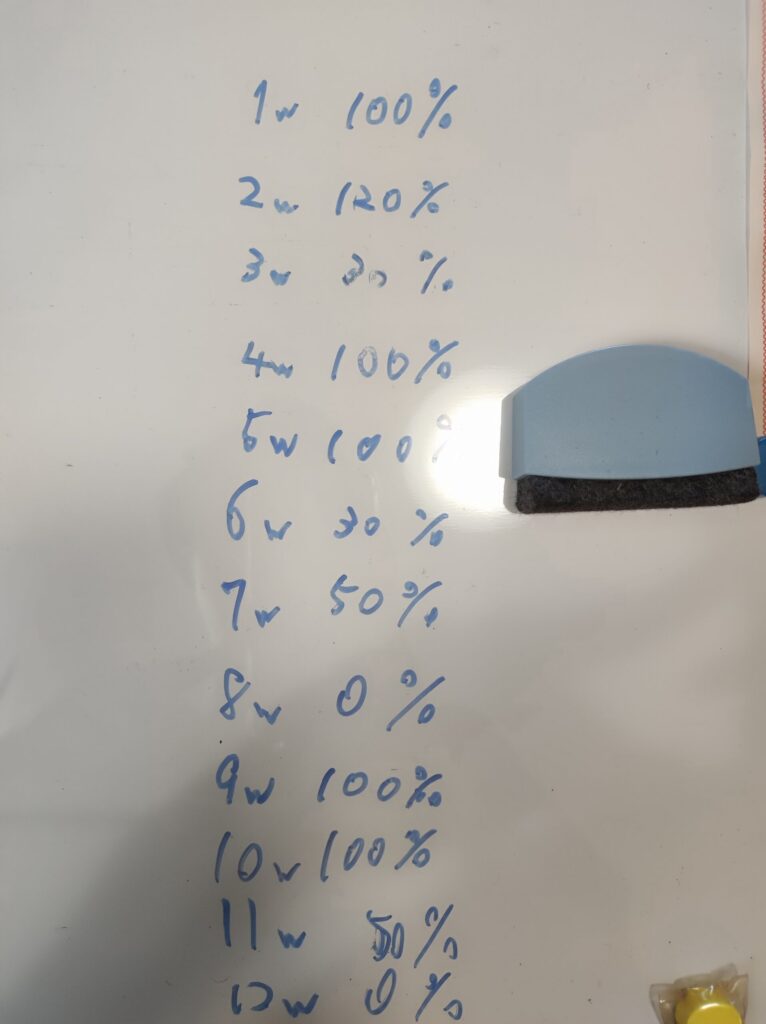 1w 100%
2w 120%
3w 30%
4w 100%
5w 100%
6w 30%
7w 50%
8w 0%
9w 100%
10w 100%
11w 50%
12w 0%